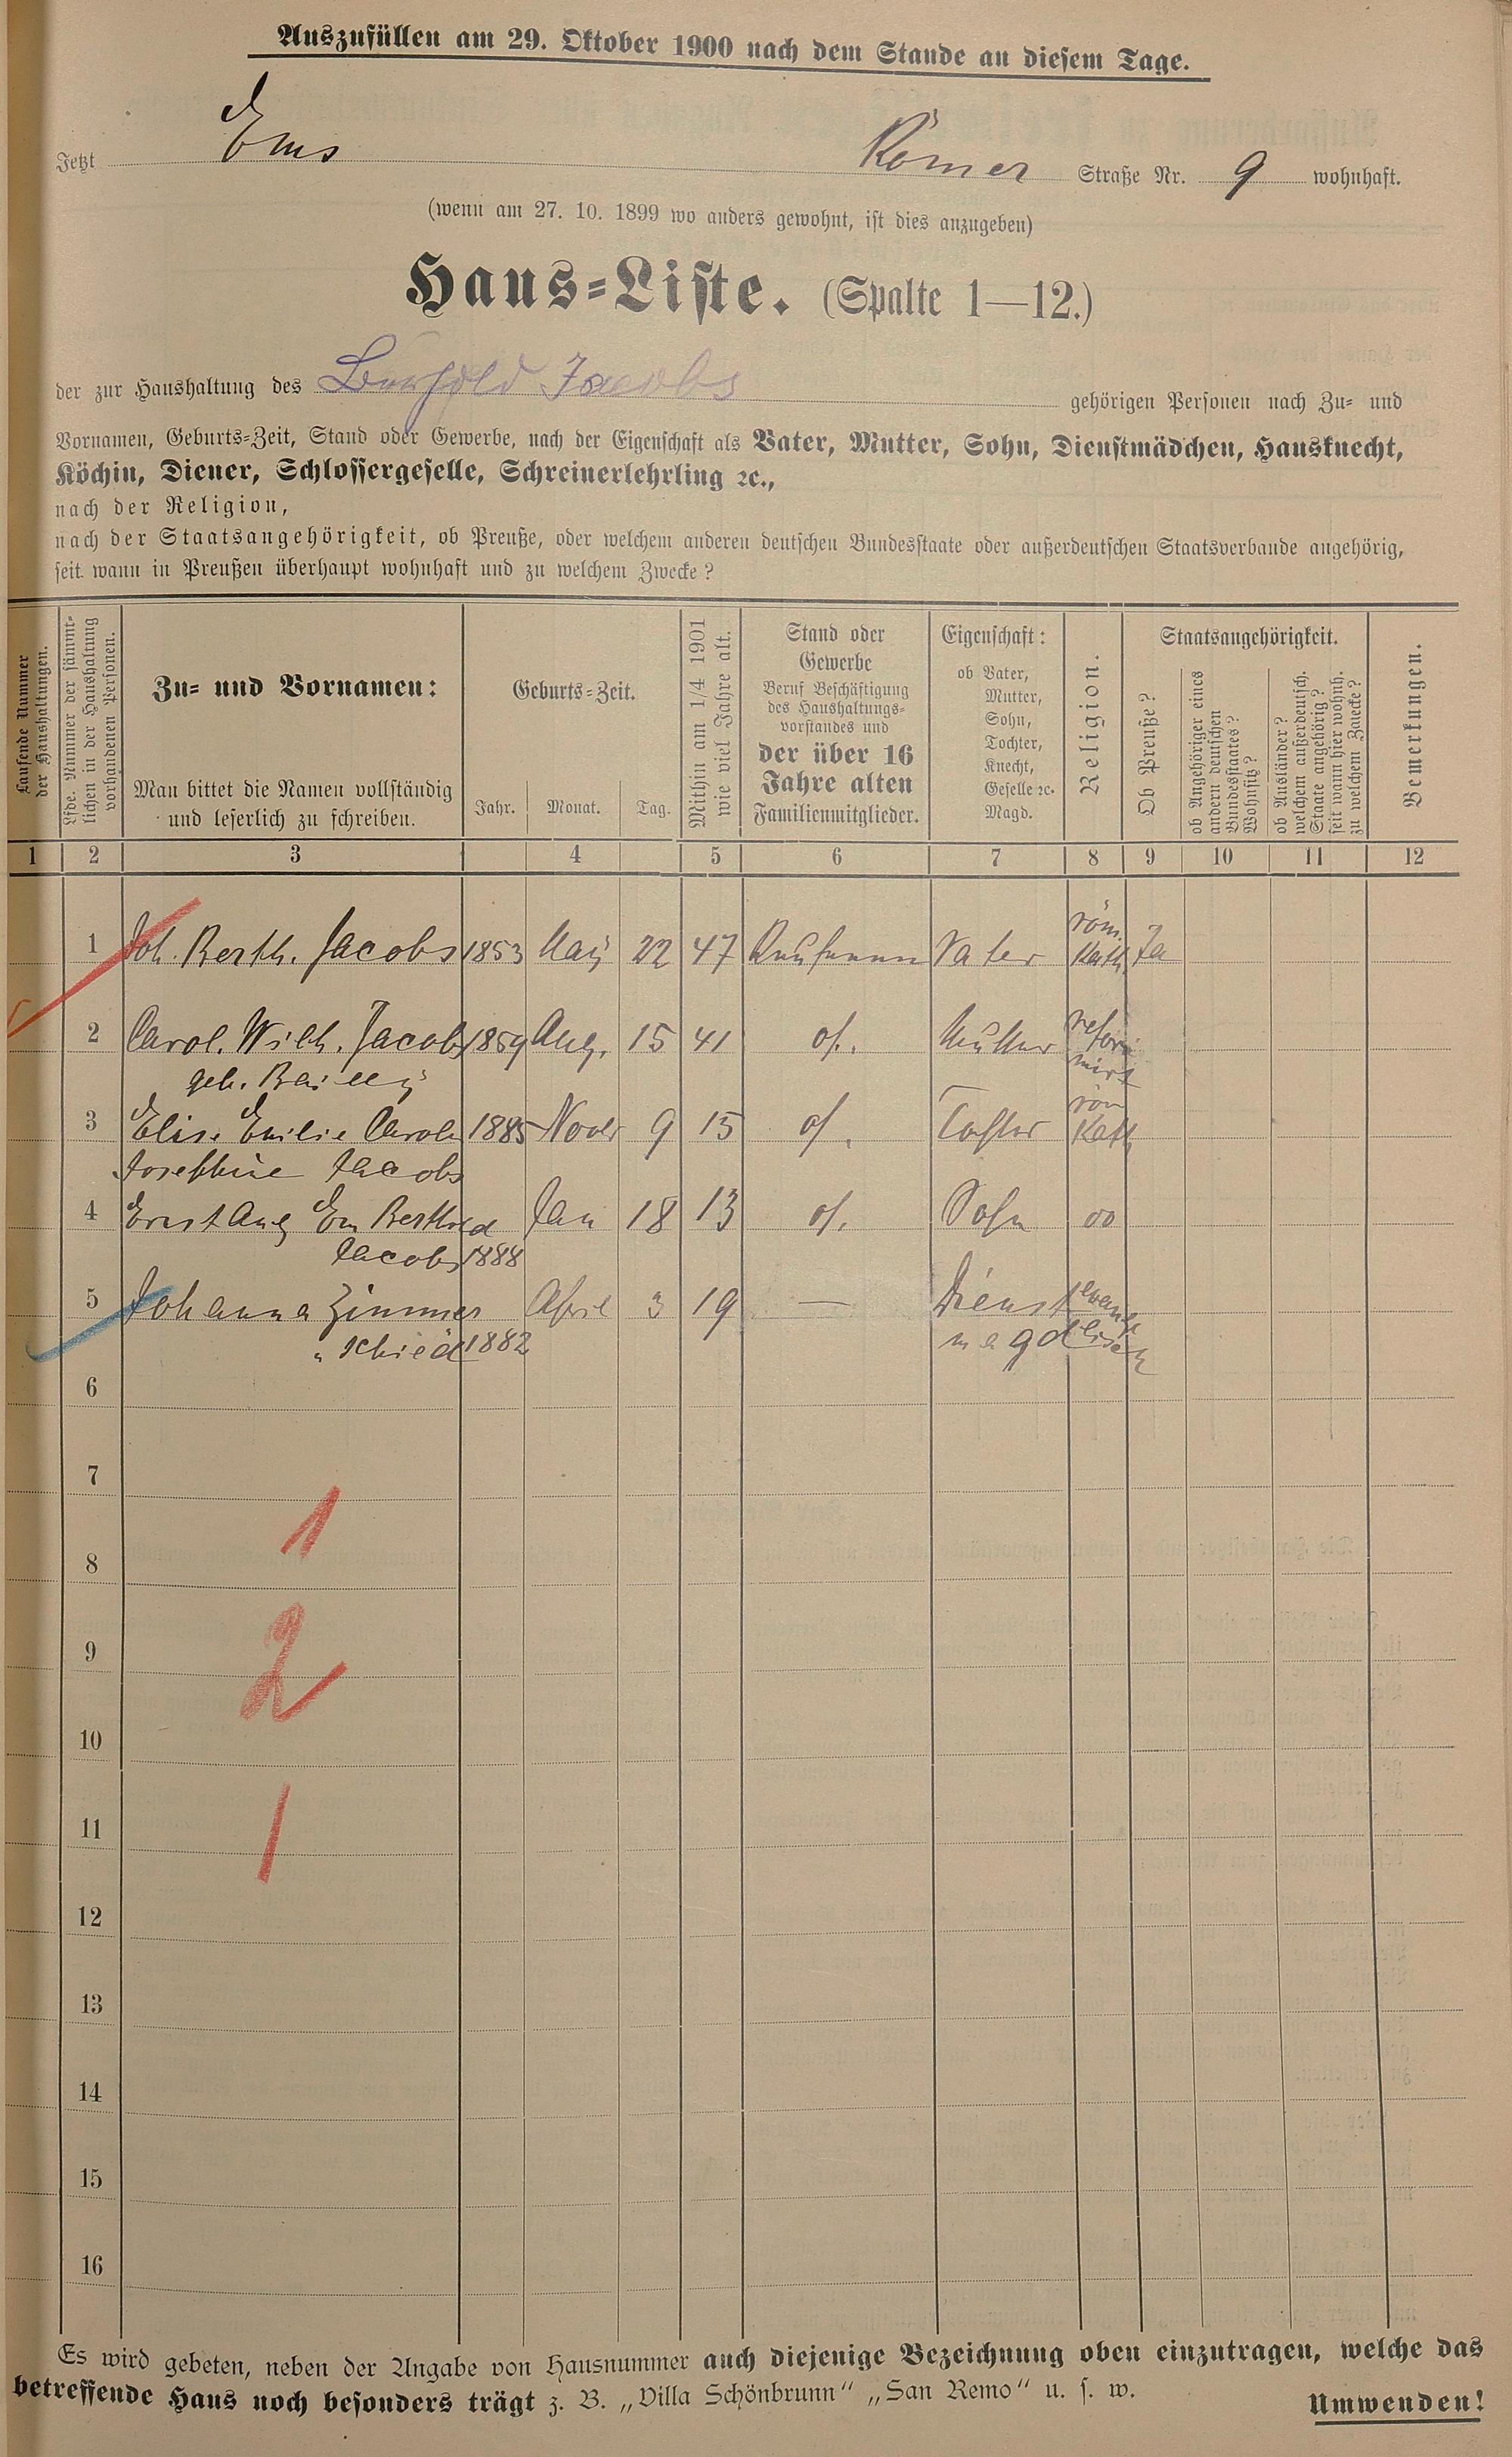 Auszufüllen am 29. Oktober 1900 nach dem Stande an diesem Tage.
Jetzt Ems Römer Straße Nr. 9 wohnhaft.
(wenn am 27. 10. 1899 wo anders gewohnt, ist dies anzugeben)
Haus-Liste. (Spalte 1—12.)
der zur Haushaltung des Jacobs gehörigen Personen nach Zu- und
Vornamen, Geburts-Zeit, Stand oder Gewerbe, nach der Eigenschaft als Vater, Mutter, Sohn, Dienstmädchen, Hausknecht,
Köchin, Diener, Schlossergeselle, Schreinerlehrling ꝛc.,
nach der Religion,
nach der Staatsangehörigkeit, ob Preuße, oder welchem anderen deutschen Bundesstaate oder außerdeutschen Staatsverbande angehörig,
seit wann in Preußen überhaupt wohnhaft und zu welchem Zwecke?
Laufende Nummer
der Haushaltungen.
Lfde. Nummer der sämmt-
lichen in der Haushaltung
vorhandenen Personen.
Zu- und Vornamen:
Man bittet die Namen vollständig
und leserlich zu schreiben.
Geburts-Zeit.
Jahr. Monat. Tag.
Mithin am 1/4 1901
wie viel Jahre alt.
Stand oder
Gewerbe
Beruf Beschäftigung
des Haushaltungs-
vorstandes und
der über 16
Jahre alten
Familienmitglieder.
Eigenschaft:
ob Vater,
Mutter,
Sohn,
Tochter,
Knecht,
Geselle ꝛc.
Magd.
Religion.
Staatsangehörigkeit.
Ob Preuße?
ob Angehöriger eines
andern deutschen
Bundesstaates?
Wohnsitz?
ob Ausländer?
welchem außerdeutsch.
Staate angehörig?
seit wann hier wohnh.
zu welchem Zwecke?
Bemerkungen.
1 2 3 4 5 6 7 8 9 10 11 12
röm.
1 Joh. Berth. Jacobs 1853 Maÿ 22 47 Kaufmann Vater Kath. Ja
2 Carol. Wilh. Jacobs 1859 Aug. 15 41 of. Mutter refor
geb. mirt
röm
3 Elise Emilie Carole 1885 Novbr 9 15 of. Tochter Kath
Josephine Jacobs
4 Ernst Aug Em Berthold Jan 18 13 of. Sohn do
Jacobs 1888
5 Johanna Zimmer April 3 19 — Dienst evang
„ schied 1882 magd elisch
6
7
1
8
9
2
10
11
1
12
13
14
15
16
Es wird gebeten, neben der Angabe von Hausnummer auch diejenige Bezeichnung oben einzutragen, welche das
betreffende Haus noch besonders trägt z. B. „Villa Schönbrunn“ „San Remo“ u. s. w.
Umwenden!